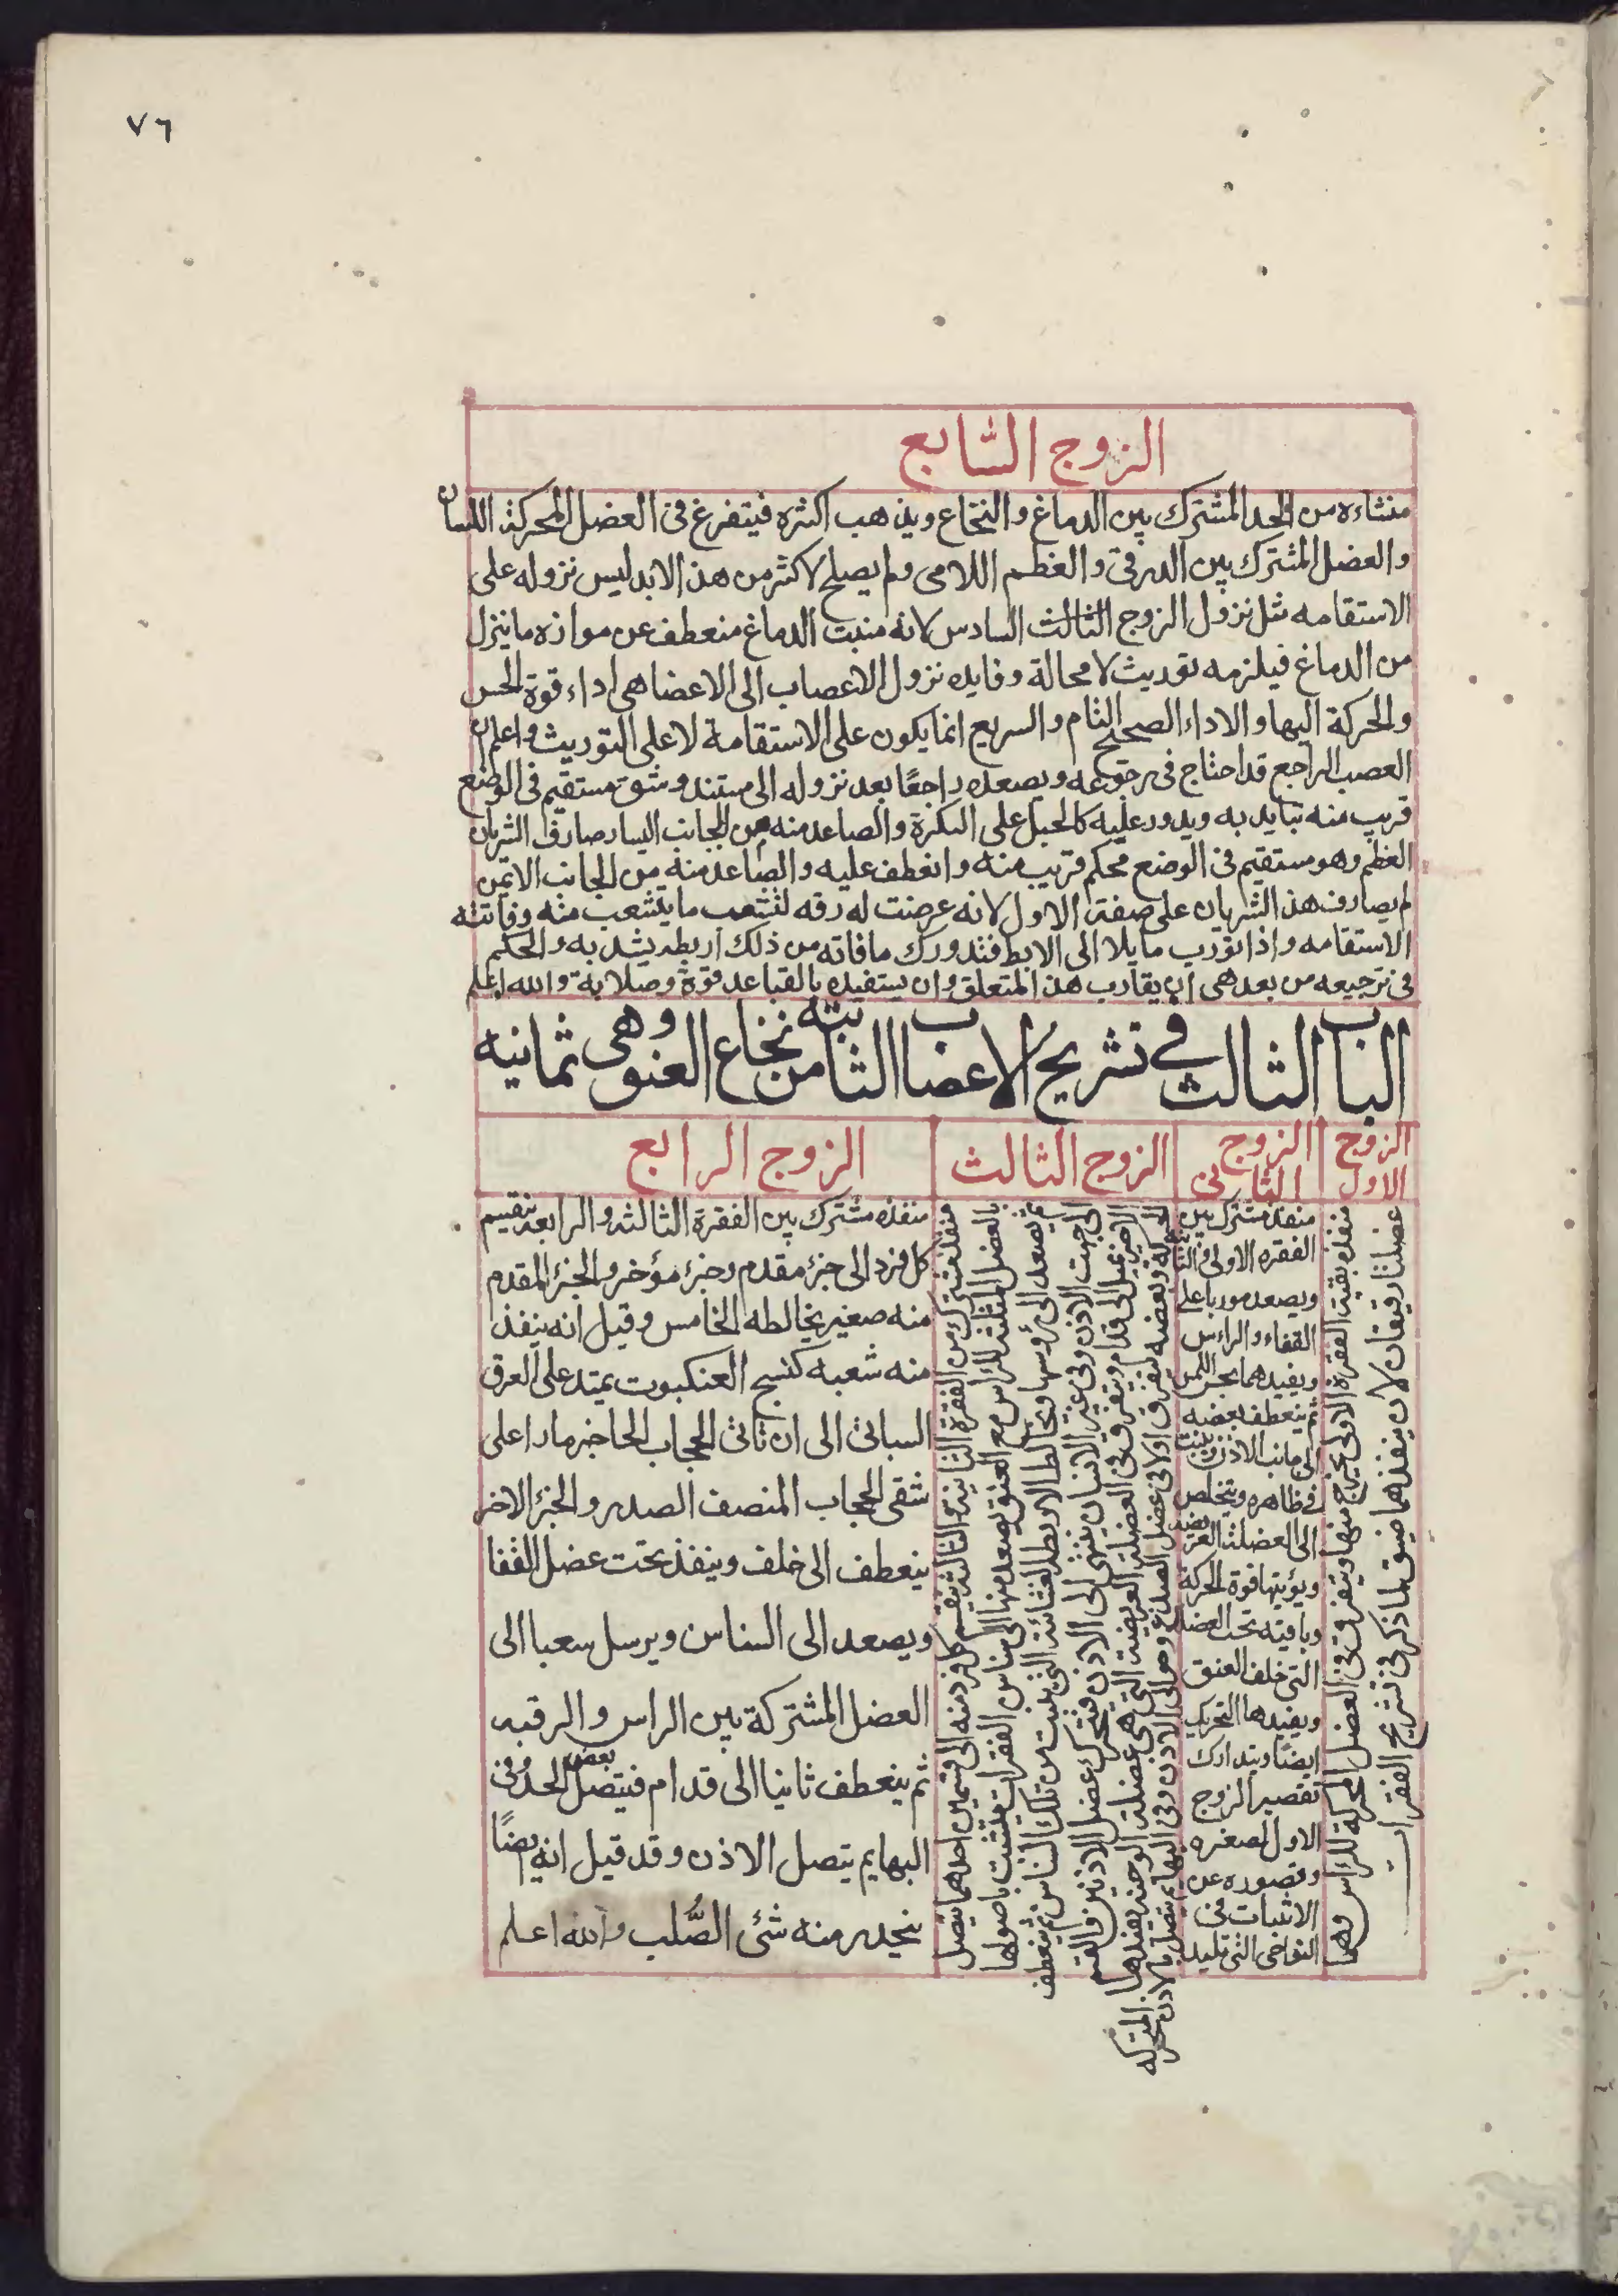 ٧٦
الزوج السابع
منشاءه من الحد المشترك بين الدماغ والنخاع ويذهب اكثره فيتفرغ فى العضل المحركة اللسان
والعضل المشترك بين الدرقى والعظم اللامى ولم يصلح لاكثر من هذا لابد ليس نزوله على
الاستقامه مثل نزول الزوج الثالث السادس لانه منبت الدماغ منعطف عن موازه ما ينزل
من الدماغ فيلزمه توريث لا محالة وفايده نزول الاعصاب الى الاعضا هى اداء قوة الحس
والحركة اليها والاداء الصحيح التام والسريع انما يكون على الاستقامة لا على التوريث واعلم ان
العصب الراجع قد احتاج فى رجوعه ويصعده راجعًا بعد نزوله الى مستند وشق مستقيم فى الوضع
قريب منه تبايد به ويدور عليه كالحبل على البكرة والصاعد منه من الجانب اليسار صادف الشريان
العظم وهو مستقيم فى الوضع محكم قريب منه وانعطف عليه والصاعد منه من الجانب الايمن
لم يصادف هذا الشريان على صفته الاول لانه عرضت له رقه لتشعب ما يتشعب منه وفاتته
الاستقامه واذا تورب مايلا الى الابط فتدورك مافاته من ذلك اربطه يشد به والحكم
فى ترجيعه من بعد هى ان يقارب هذا المتعلق وان يستفيده بالقباعد قوة وصلابة والله اعلم
الباب الثالث في تشريح الاعضاب الثابته من نخاع العنق وهى ثمانيه
الزوج الاول
منفذه بقية الفقرة الاولى يخرج منها ويتفرق فى العضل المحركة للراس وهما
عضلتا رقيقان لان منفذهما ضيق لما ذكر فى تشريح الفقرات
الزوج الثانى
منفذه مشترك بين
الفقره الاولى والثانية
ويصعد موربا على
القفاء والراس
ويفيدهما بحس اللمس
ثم ينعطف بعضه
الى جانب الاذن
فى ظاهره ويتخلص
الى العضلة العريضه
ويؤيتها قوة الحركة
وباقيته تحت العضل
التى خلف العنق
ويفيدها التحريك
ايضًا ويتدارك
تقصير الزوج
الاول لصغره
وقصوره عن
الاثبات فى
النواحى التى تليه
الزوج الثالث
منفذه مشترك من الفقرة الثانيه والثالثه ينقسم كل فرد منه الى قسمين احدهما يتصل
بالعضل المثلثه للراس مع العنق يصعد منها الى سناس الفقرات يتشبث باصولها
ثم يصعد الى رؤوسها ويخالط الاربطه الغشائه التى ينبت من تلك السناس ثم ينعطف
الى جهت الاذن وفى غير الانسان ينتهى الى الاذن فيحرك عضل الاذنين والقسم
الاخر يميل الى قدام ويتفرق فى العضلة العريضه التى هى عضلة الوجنه يفيدها المتحركه
بعضه يتفرق اولا فى عضل الصدغ وحوالى الاذن وفى البهايم يتصل بالاذن يحركه
الزوج الرابع
منفذه مشترك بين الفقرة الثالثه والرابعه ينقسم
كل فرد الى جزء مقدم وجزء مؤخر والجزء المقدم
منه صغير يخالطه الخامس وقيل انه ينفذ
منه شعبه كنسج العنكبوت يمتد على العرق
السباتى الى ان تاتى الحجاب الحاجز مارا على
شقى الحجاب المنصف الصدر والجزء الاخر
ينعطف الى خلف وينفذ تحت عضل القفا
ويصعد الى السناس ويرسل سعبا الى
العضل المشتركة بين الراس والرقبه
ثم ينعطف ثانيا الى قدام فيتصل بعض الحد وفى
البهايم يتصل الاذن وقد قيل انه ايضًا
ينحدر منه شئ الصُّلب والله اعلم